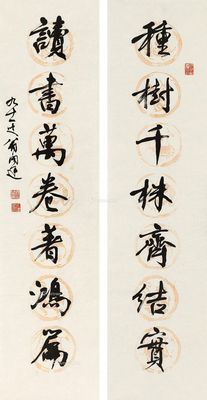 種樹千株齊結實
讀書萬卷著鴻篇